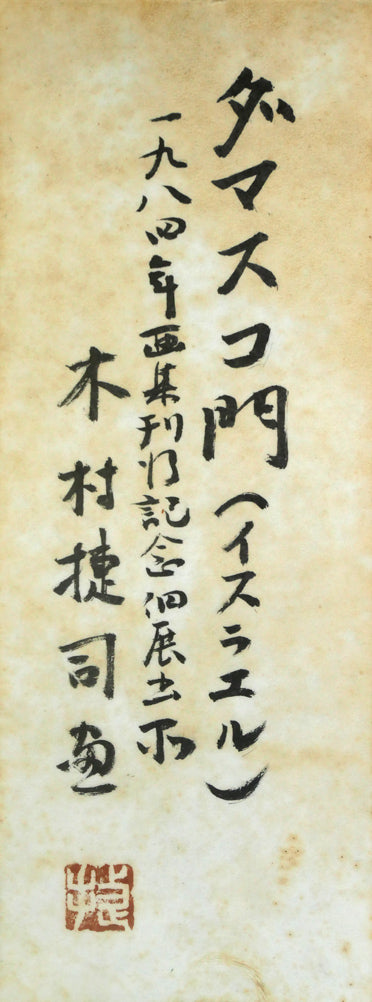 ダマスコ門（イスラエル）
一九八四年画集刊行記念個展出示
木村捷司画
捷